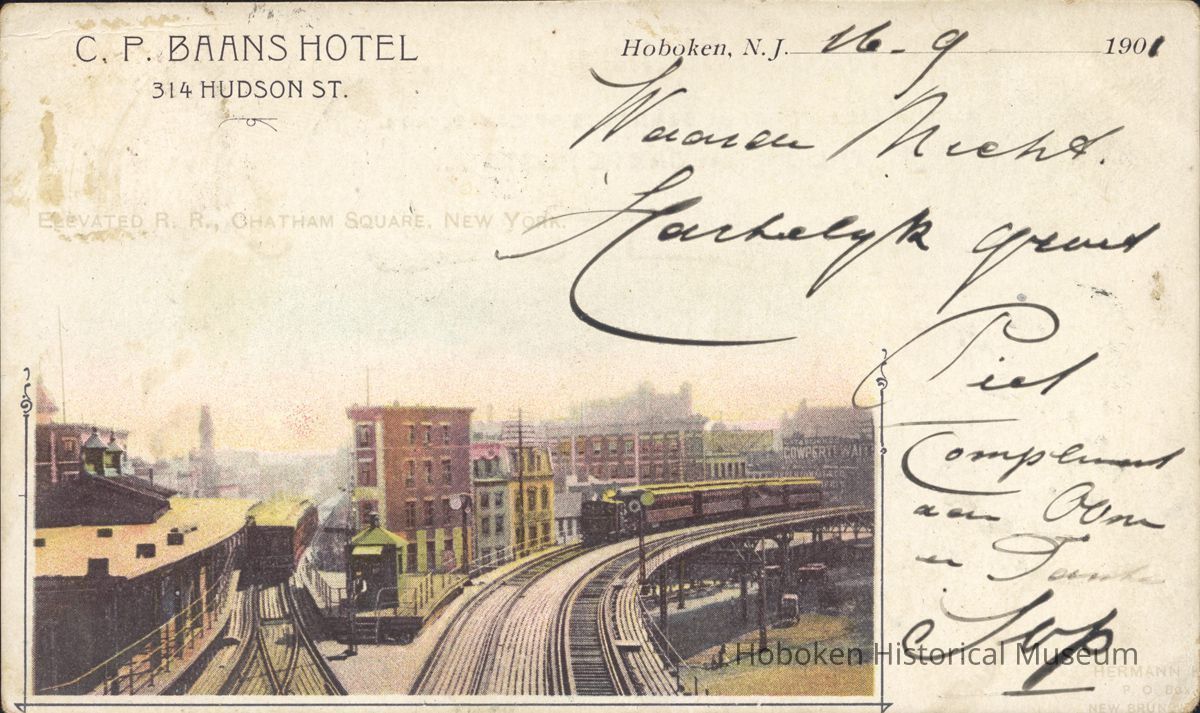 C. P. BAANS HOTEL
314 HUDSON ST.
Hoboken, N. J. 16-9 1901
Waarde Nicht.
Hartelyk groet
ELEVATED R. R., CHATHAM SQUARE, NEW YORK.
Piet
Compliment
aan Oom
en Tante
COWPERTHWAIT
Hoboken Historical Museum
HERMANN
P. O. Box
NEW BRUN